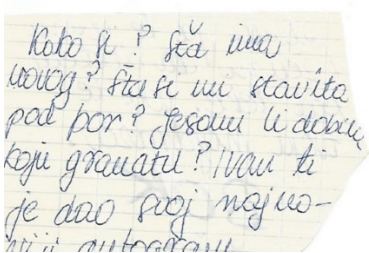 Kako si? Šta ima
novog? Šta si mi stavila
pod bor? Jesam li dobila
koju granatu? Ivan ti
je dao svoj najno-
viji autogram